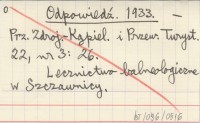 Odpowiedź. 1933. —
Prz. Zdroj.-Kąpiel. i Przew. Turyst.
22, nr 3: 26.
Lecznictwo balneologiczne
w Szczawnicy.
kr/096/0516